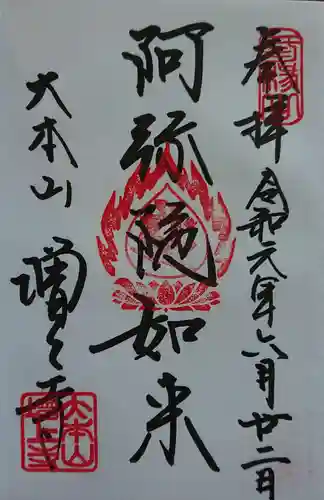 奉拝
令和元年六月廿二日
阿弥陀如来
大本山
増上寺
大本山
増上寺